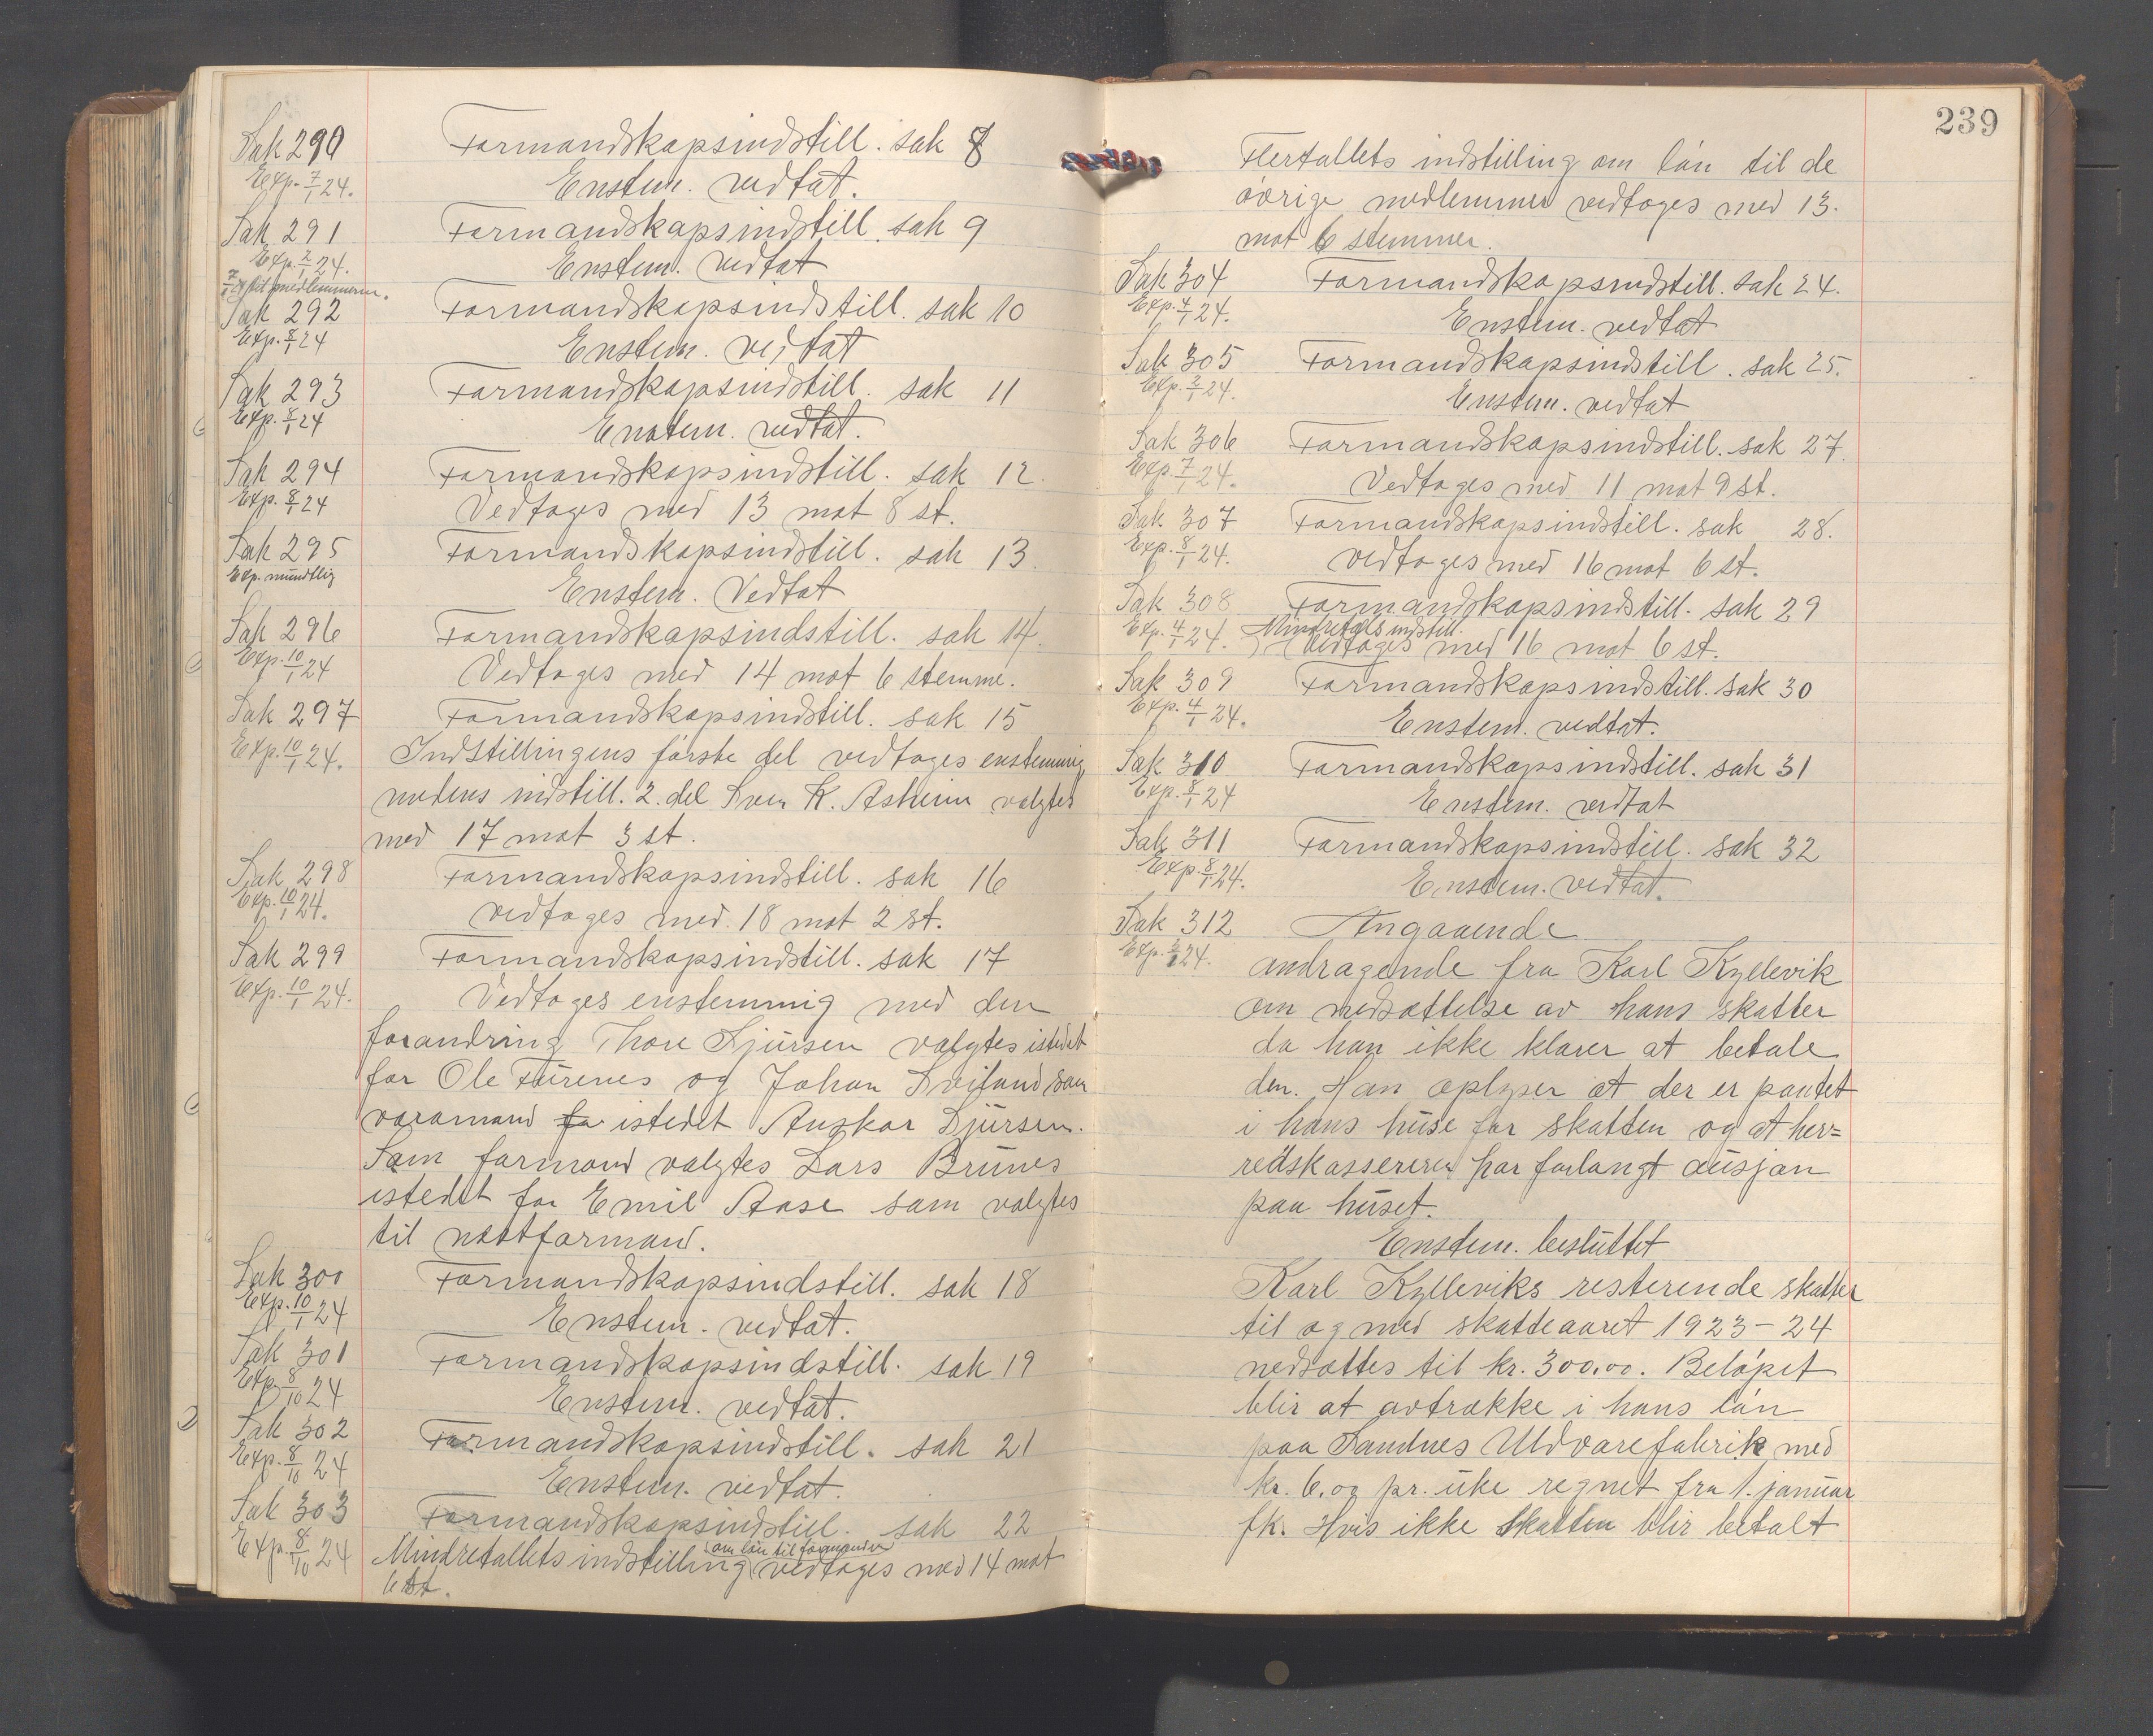 Sak 290 Formandskapsindstill. sak 8
Exp. 7/1 24. Enstem. vedtat.
Sak 291 Formandskapsindstill. sak 9
Exp. 2/1 24. Enstem. vedtat
7/1 til medlemmerne.
Sak 292 Formandskapsindstill. sak 10
Exp. 8/1 24 Enstem. vedtat
Sak 293 Formandskapsindstill. sak 11
Exp. 8/1 24 Enstem. vedtat.
Sak 294 Formandskapsindstill. sak 12.
Exp. 8/1 24 Vedtages med 13 mot 8 st.
Sak 295 Formandskapsindstill. sak 13.
Exp. mundtlig Enstem. Vedtat
Sak 296 Formandskapsindstill. sak 14.
Exp. 10/1 24 Vedtages med 14 mot 6 stemme.
Sak 297 Formandskapsindstill. sak 15
Exp. 10/1 24. Indstillingens første del vedtages enstemmig
indstill. 2. del Sven K. Asheim valgtes
med 17 mot 3 st.
Sak 298 Formandskapsindstill. sak 16
Exp. 10/1 24. vedtages med 18 mot 2 st.
Sak 299 Formandskapsindstill. sak 17
Exp. 10/1 24. Vedtages enstemmig med den
forandring Thore Sjursen valgtes istedet
for Ole Furenes og Johan Sviland som
varamand fo istedet Anskar Sjursen.
Som formand valgtes Lars Brunes
istedet for Emil Aase som valgtes
til næstformand.
Sak 300 Formandskapsindstill. sak 18
Exp. 10/1 24 Enstem. vedtat.
Sak 301 Formandskapsindstill. sak 19
Exp. 8/10 24 Enstem. vedtat.
Sak 302 Formandskapsindstill. sak 21
Exp. 8/10 24 Enstem. vedtat.
Sak 303 Formandskapsindstill. sak 22
Exp. 8/10 24 Mindretallets indstilling om lån til formanden vedtages med 14 mot
6 st.
239
Flertallets indstilling om lån til de
øvrige medlemmer vedtages med 13.
mot 6 stemmer.
Sak 304 Formandskapsindstill. sak 24.
Exp. 4/1 24. Enstem. vedtat
Sak 305 Formandskapsindstill. sak 25.
Exp. 2/1 24. Enstem. vedtat
Sak 306 Formandskapsindstill. sak 27.
Exp. 7/1 24. Vedtages med 11 mot 9 st.
Sak 307 Formandskapsindstill. sak 28.
Exp. 8/1 24. vedtages med 16 mot 6 st.
Sak 308 Formandskapsindstill. sak 29
Mindretals indstill.
Exp. 4/1 24. vedtages med 16 mot 6 st.
Sak 309 Formandskapsindstill. sak 30
Exp. 4/1 24. Enstem. vedtat.
Sak 310 Formandskapsindstill. sak 31
Exp. 8/1 24 Enstem. vedtat
Sak 311 Formandskapsindstill. sak 32
Exp. 8/1 24. Enstem. vedtat.
Sak 312 Angaaende
Exp. 24. andragende fra Karl Kyllevik
om nedsættelse av hans skatter
da han ikke klarer at betale
den. Han oplyser at der er pantet
i hans huse for skatten og at her=
redskassereren har forlangt ausjon
paa huset.
Enstem. besluttet
Karl Kylleviks resterende skatter
til og med skatteaaret 1923-24
nedsættes til kr. 300.00. Beløpet
blir at avtrække i hans lån
paa Sandnes Uldvarefabrik med
kr. 6.00 pr. uke regnet fra 1. januar
fk. Hvis ikke skatten blir betalt